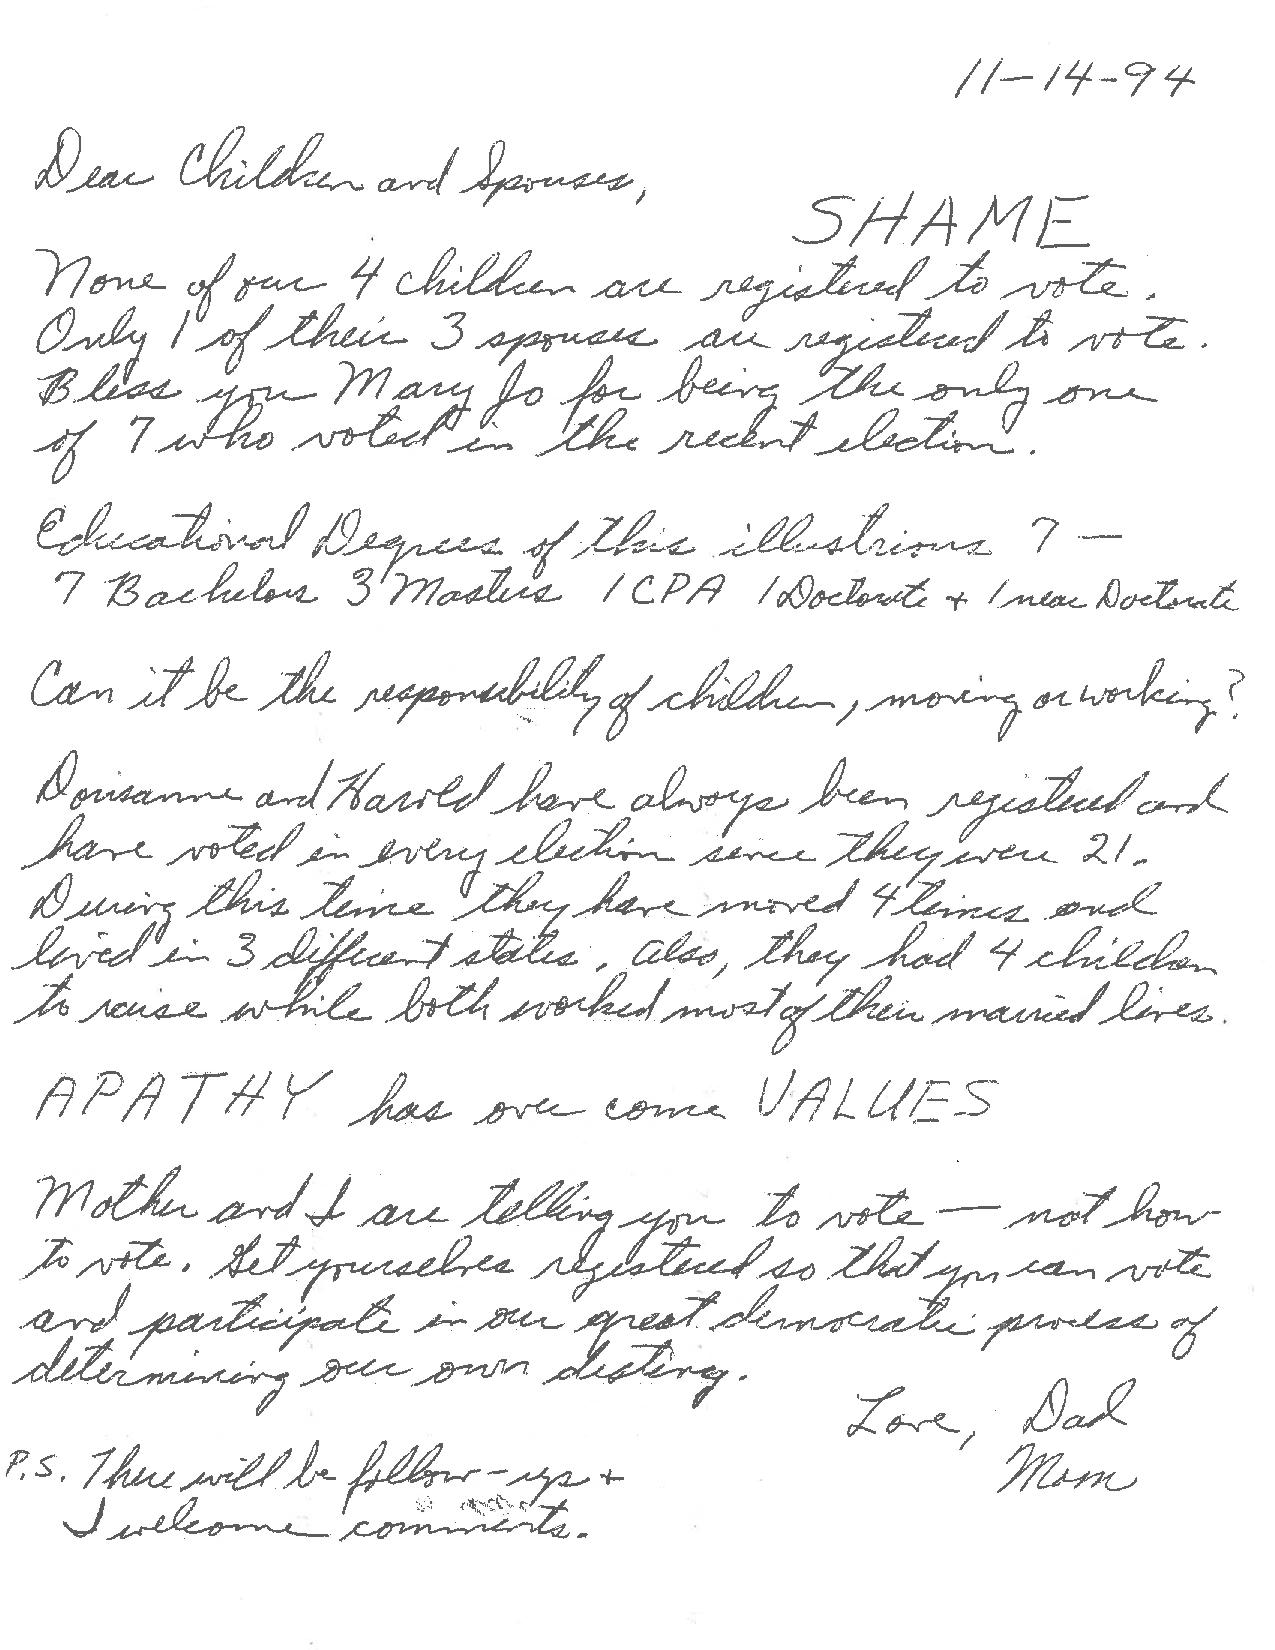 11-14-94
Dear Children and Spouses,
SHAME
None of our 4 children are registered to vote.
Only 1 of their 3 spouses are registered to vote.
Bless you Mary Jo for being the only one
of 7 who voted in the recent election.
Educational Degrees of this illustrious 7 —
7 Bachelors 3 Masters 1 CPA 1 Doctorate + 1 near Doctorate
Can it be the responsibility of children, moving or working?
Dorisanne and Harold have always been registered and
have voted in every election since they were 21.
During this time they have moved 4 times and
lived in 3 different states. Also, they had 4 children
to raise while both worked most of their married lives.
APATHY has over come VALUES
Mother and I are telling you to vote — not how
to vote. Get yourselves registered so that you can vote
and participate in our great democratic process of
determining our own destiny.
Love, Dad
Mom
P.S. There will be follow-ups +
I welcome comments.